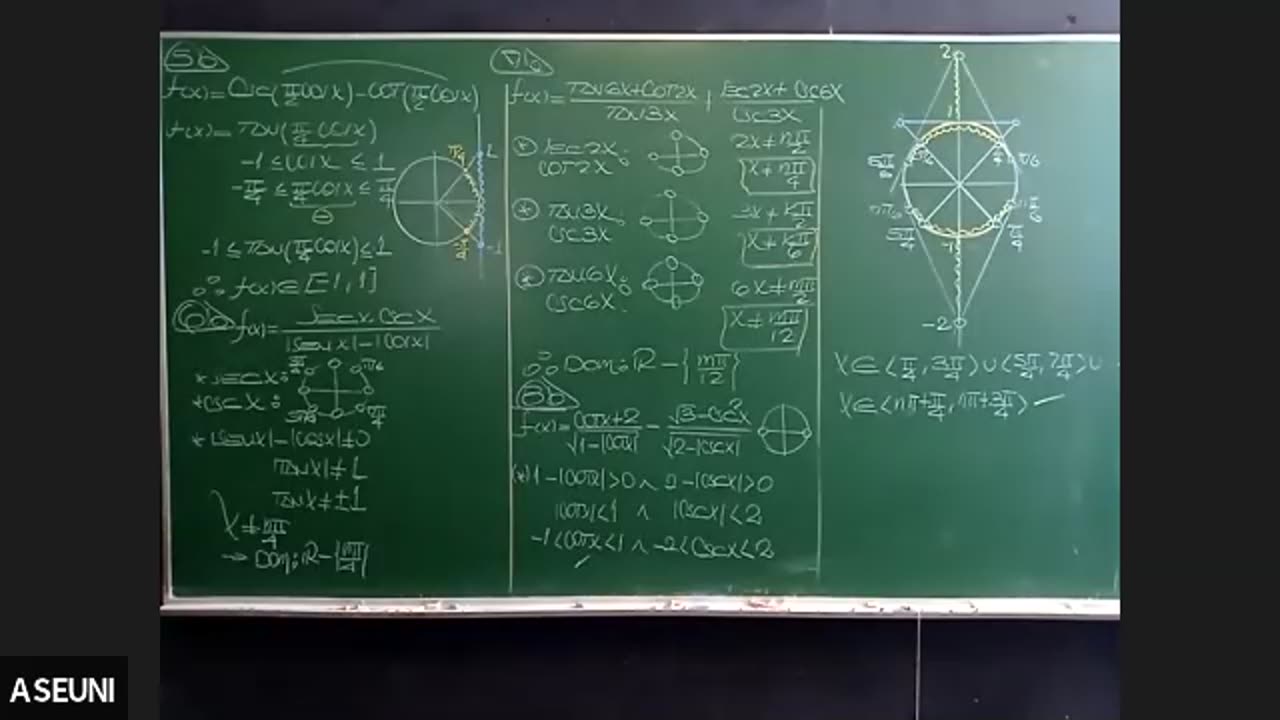 5b
f(x) = Csc(π/2 cosx) - COT(π/2 cosx)
f(x) = TAN(π/4 cosx)
-1 ≤ cosx ≤ 1
-π/4 ≤ π/4 cosx ≤ π/4
θ
π/4
1
-π/4
-1
-1 ≤ TAN(π/4 cosx) ≤ 1
∴ f(x) ∈ [-1, 1]
f(x) = secx.cscx / |senx| - |cosx|
* secx:
* cscx:
* |senx| - |cosx| ≠ 0
|TANx| ≠ 1
TANx ≠ ±1
x ≠ nπ/4
→ Dom: R - {nπ/4}
7b
f(x) = TAN6x + COT2x / TAN3x + sec2x + csc6x / csc3x
* sec2x
COT2x :
2x ≠ nπ/2
x ≠ nπ/4
* TAN3x
csc3x :
3x ≠ kπ/2
x ≠ kπ/6
* TAN6x
csc6x :
6x ≠ mπ/2
x ≠ mπ/12
∴ Dom: R - {mπ/12}
8b
f(x) = COTx+2 / √1-|COTx| - √3-csc²x / √2-|cscx|
(*) 1 - |COTx| > 0 ∧ 2 - |cscx| > 0
|COTx| < 1 ∧ |cscx| < 2
-1 < COTx < 1 ∧ -2 < cscx < 2
2
1
5π/6
π/6
5π/4
-1
-2
x ∈ <π/4, 3π/4> ∪ <5π/4, 7π/4> ∪
x ∈ <nπ+π/4, nπ+3π/4>
ASEUNI